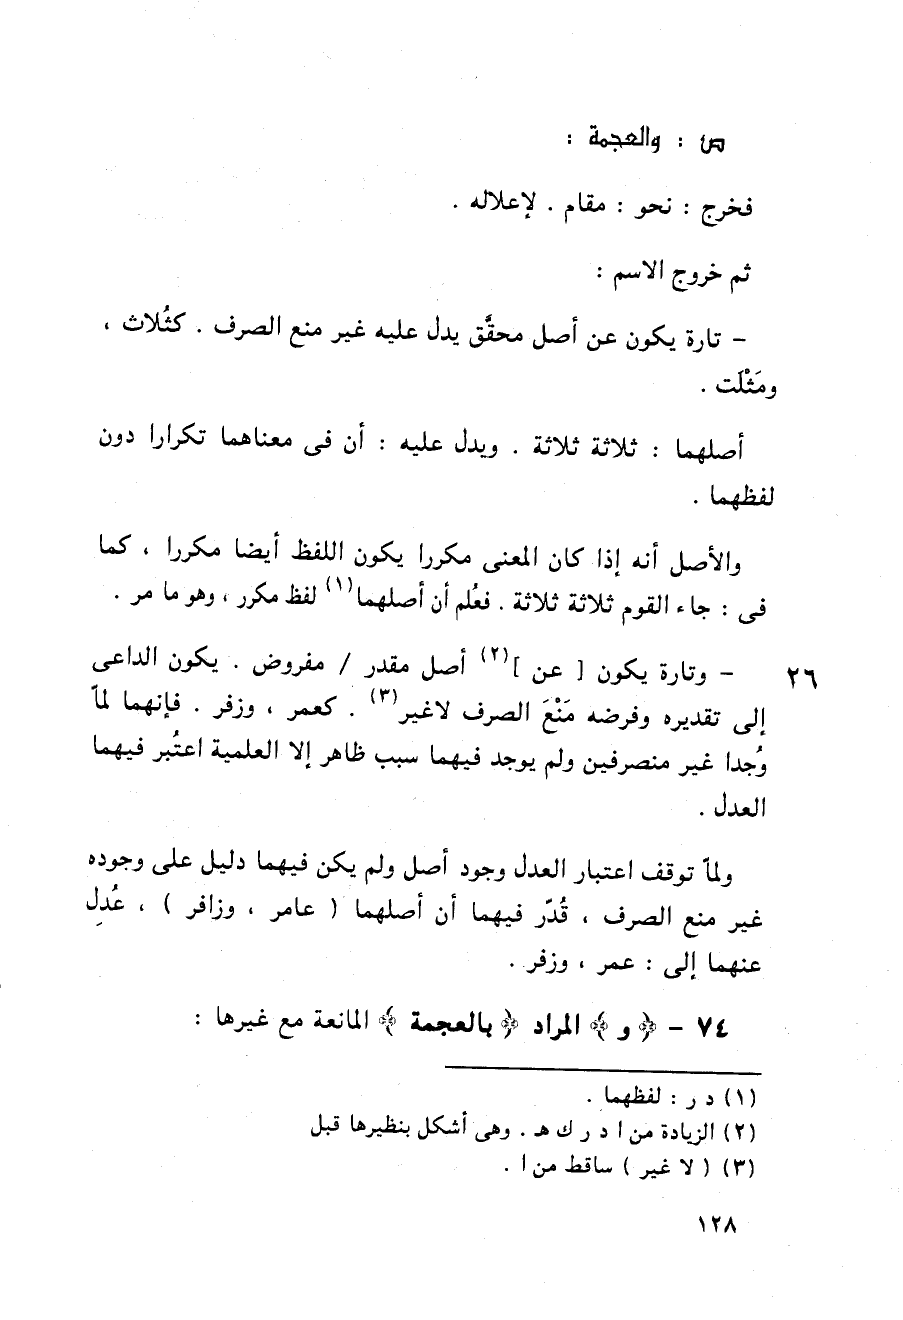 ص : والعجمة :
فخرج : نحو : مقام . لإعلاله .
ثم خروج الاسم :
– تارة يكون عن أصل محقَّق يدل عليه غير منع الصرف . كثُلاث ،
ومَثْلَت .
أصلهما : ثلاثة ثلاثة . ويدل عليه : أن فى معناهما تكرارا دون
لفظهما .
والأصل أنه إذا كان المعنى مكررا يكون اللفظ أيضا مكررا ، كما
فى : جاء القوم ثلاثة ثلاثة . فعُلم أن أصلهما(١) لفظ مكرر ، وهو ما مر .
– وتارة يكون [ عن ](٢) أصل مقدر / مفروض . يكون الداعى ٢٦
إلى تقديره وفرضه مَنْعَ الصرف لاغير(٣) . كعمر ، وزفر . فإنهما لمّا
وُجدا غير منصرفين ولم يوجد فيهما سبب ظاهر إلا العلمية اعتُبر فيهما
العدل .
ولمّا توقف اعتبار العدل وجود أصل ولم يكن فيهما دليل على وجوده
غير منع الصرف ، قُدّر فيهما أن أصلهما ( عامر ، وزافر ) ، عُدِل
عنهما إلى : عمر ، وزفر .
٧٤ – ﴿ و ﴾ المراد ﴿ بالعجمة ﴾ المانعة مع غيرها :
(١) د ر : لفظهما .
(٢) الزيادة من ا د ر ك هـ . وهى أشكل بنظيرها قبل
(٣) ( لا غير ) ساقط من ا .
١٢٨